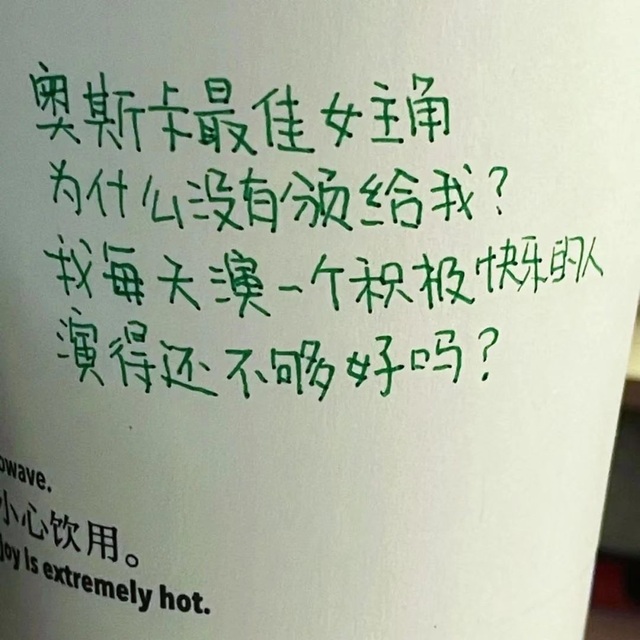 奥斯卡最佳女主角
为什么没有颁给我?
我每天演一个积极快乐的人
演得还不够好吗?
owave.
小心饮用。
joy is extremely hot.